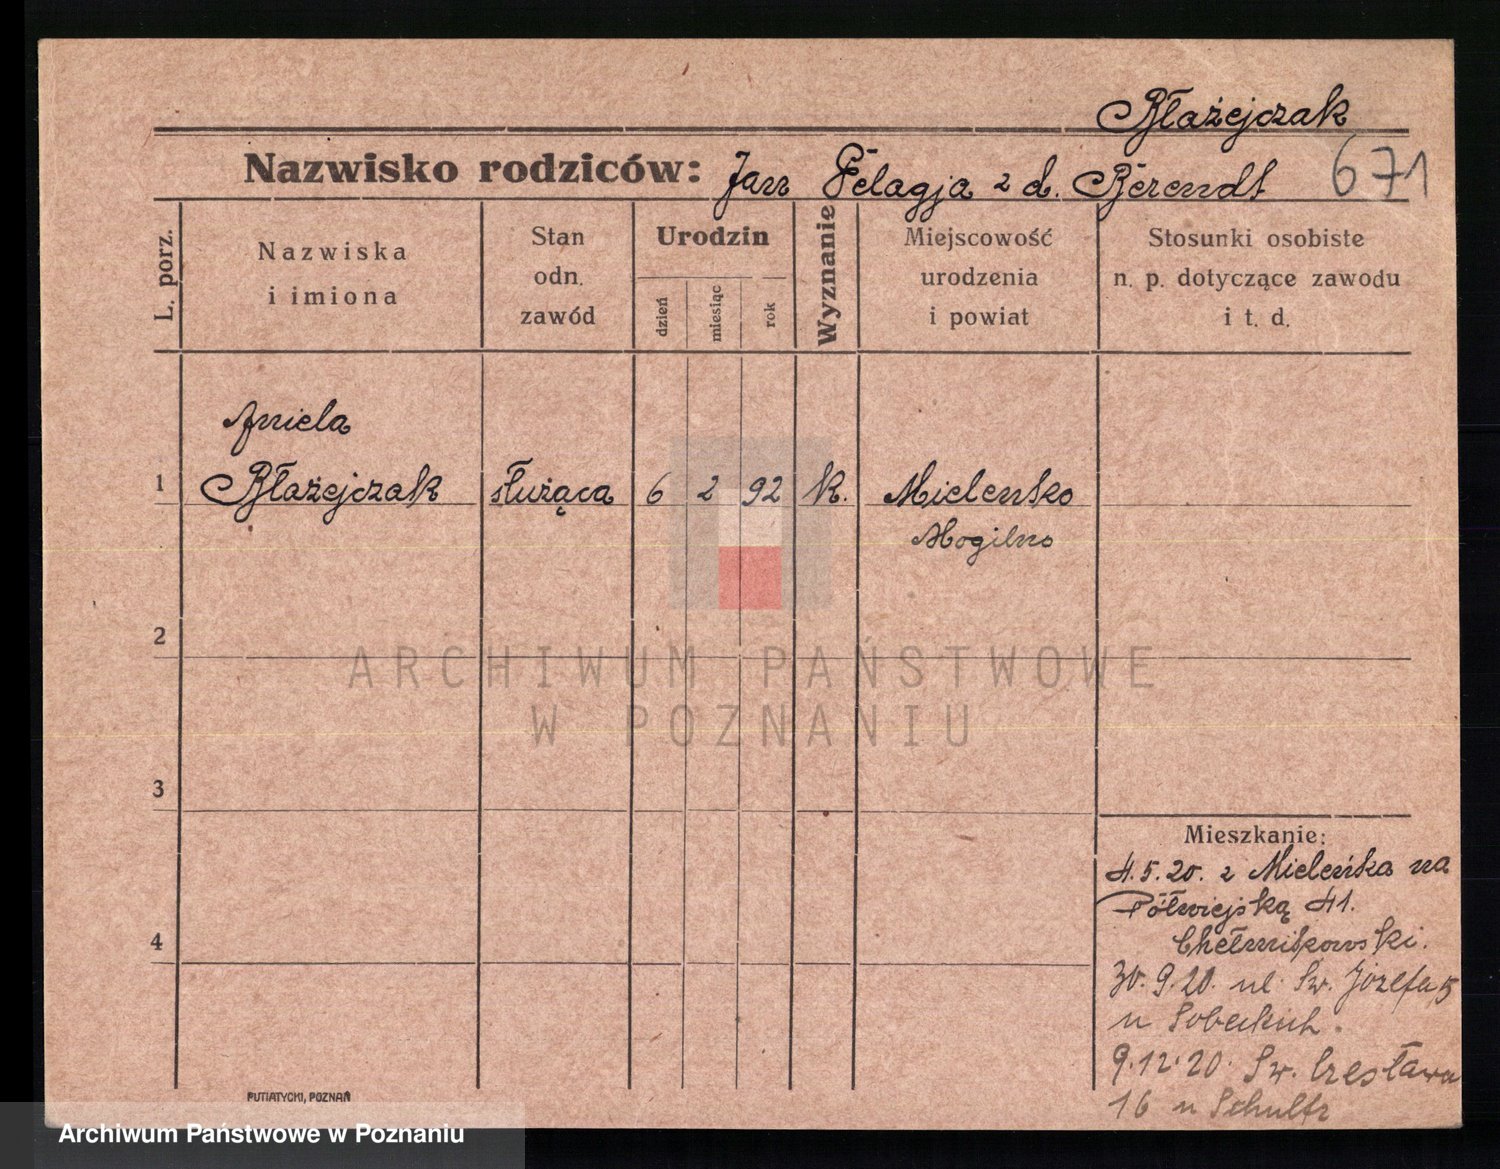 Błażejczak
Nazwisko rodziców: Jan Pelagja z d. Berendt 671
L. porz.
Nazwiska
i imiona
Stan
odn.
zawód
Urodzin
dzień
miesiąc
rok
Wyznanie
Miejscowość
urodzenia
i powiat
Stosunki osobiste
n. p. dotyczące zawodu
i t. d.
Aniela
1 Błażejczak służąca 6 2 92 k. Mielenko
Mogilno
2
ARCHIWUM PAŃSTWOWE
W POZNANIU
3
Mieszkanie:
4.5.20. z Mieleńka na
Półwiejską 41.
Chełmikowski.
4
30.9.20. ul. Św. Józefa 5
u Sobeckich.
9.12.20. Św. Czesława
16 u Schultz
PUTIATYCKI, POZNAŃ
Archiwum Państwowe w Poznaniu